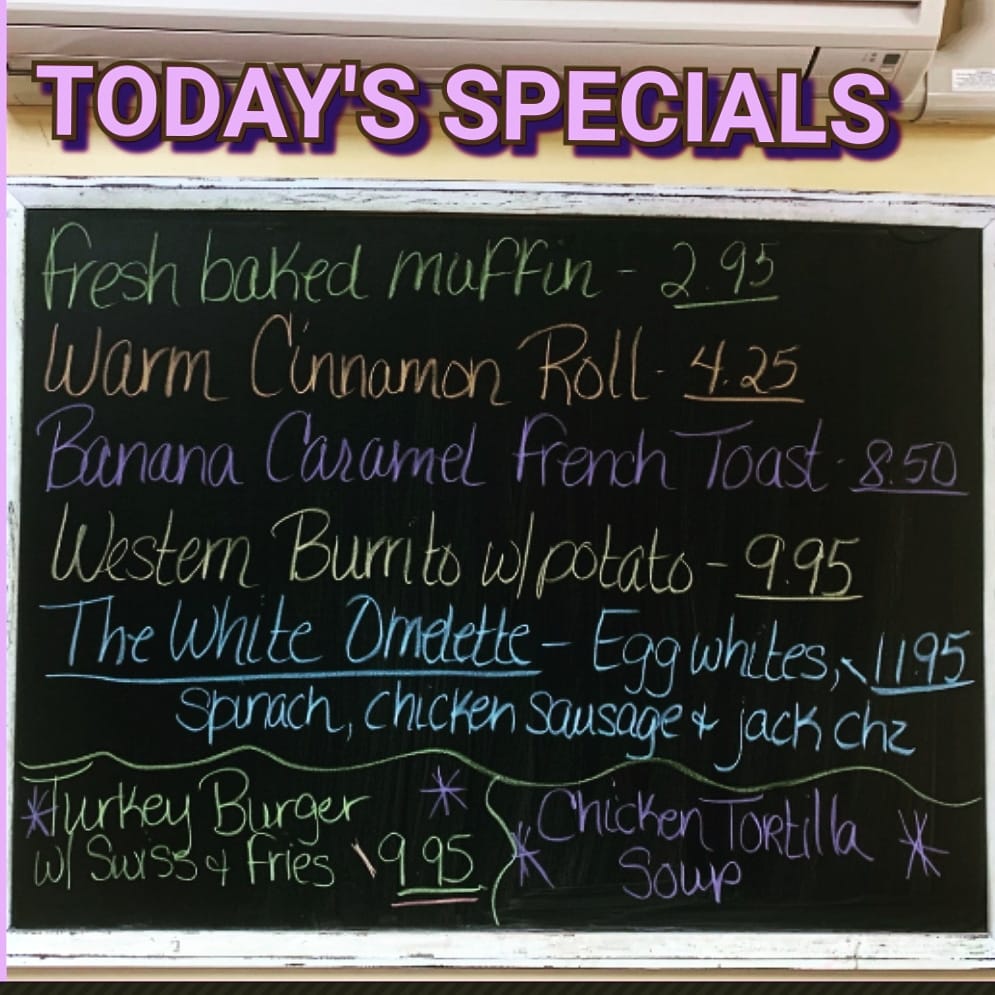 TODAY'S SPECIALS
fresh baked muffin - 2.95
Warm Cinnamon Roll - 4.25
Banana Caramel French Toast - 8.50
Western Burrito w/potato - 9.95
The White Omelette - Egg whites, \ 11.95
spinach, chicken sausage & jack chz
*Turkey Burger *
w/ Swiss & Fries \ 9.95
* Chicken Tortilla *
Soup